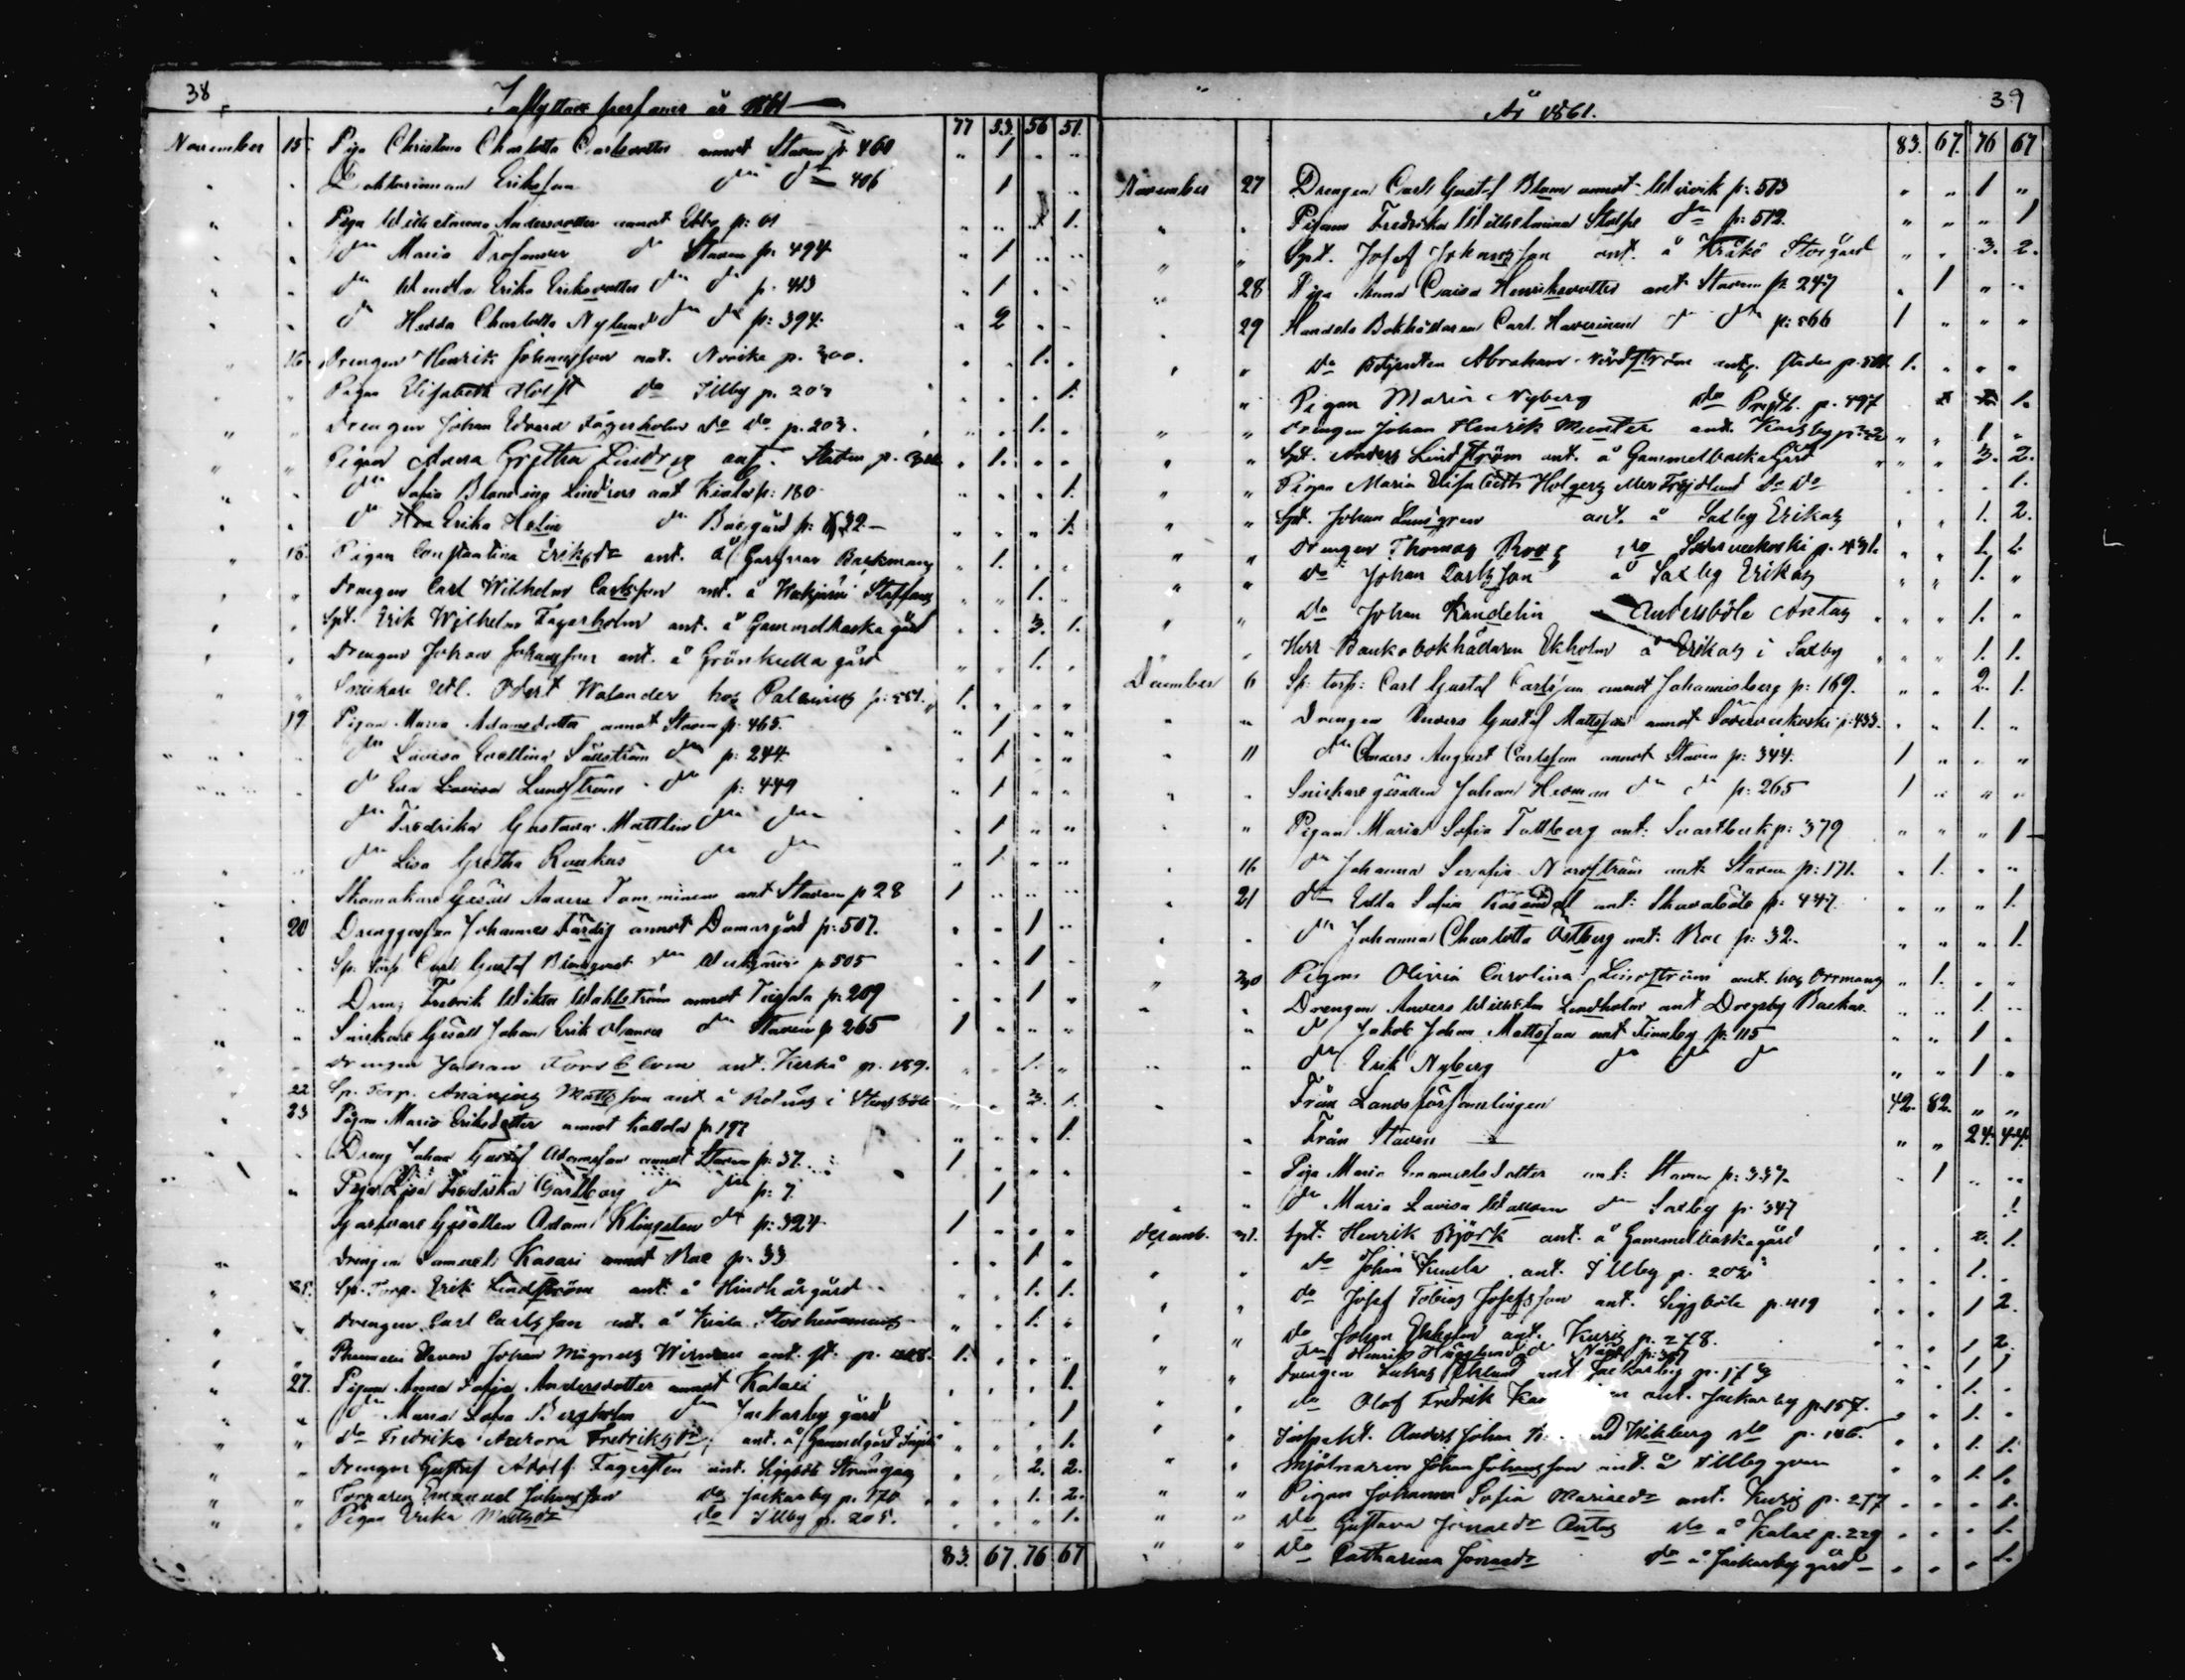 38
Inflyttade personer år 1861
77 53. 56 51.
November 15. Piga Christina Charlotta Carlsdotter annot Staden p. 460 " 1 " "
Doktorinnan Eriksson dto dto 406 1
Piga Wilhelmina Andersdotter annot Ebbo p: 61 1.
dto Maria Trofimoer do Staden p: 494 1
dto Wendla Erika Eriksdotter dto dto p. 413 1
do Hedda Charlotta Nylund dto dto p: 394. 2
16. Drengen Henrik Johansson ant. Norike p. 300. 1.
Pigan Elisabeth Holst do Illby p. 207 1.
Drengen Johan Edvard Fagerholm do do p. 203. 1.
Pigan Anna Gretha Lindroz ant. Staden p. 1.
dto Sofia Blandina Lindroos ant Kiala p: 180. 1.
do Erika Helin do Borgård p: 32 – 1.
18. Pigan Constantina Eriksdr ant. å Garfvar Backmans 1.
Drengen Carl Wilhelm Carlsson ant. å Wekjärvi Staffans 1.
Spt. Erik Wilhelm Fagerholm ant. å Gammelbacka gård 3. 1.
Drengen Johan Johansson ant. å Grönkulla gård 1.
Snickare Edl. Robert Walander hos Palenius p: 551. 1.
19. Pigan Maria Adamsdotter annot Staden p: 465. 1
dto Lovisa Evelina Sällström dto p: 244. 1
do Eva Lovisa Lundström do p: 449 1
dto Fredrika Gustava Mattlin dto dto 1
dto Lisa Gretha Roukus dto dto 1
Skomakare Gesäll Anders Tamminen ant Staden p 28 1
20 Drenggossen Johannes Färdig annot Domargård p: 507. 1
Sp. torp. Carl Gustaf Blomqvist dto Wekjärvi p 505 1
Dreng Fredrik Wiktor Wahlström annot Teissala p: 209 1
Snickare Gesäll Johan Erik Manner dto Staden p 265 1
Drengen Johan Forsblom ant. Kerko p. 189. 1.
22 Sp. Torp. Ananias Mattsson ant å Rotus i Stensböle 3. 1.
23 Pigan Maria Eriksdotter annot Kallola p. 197 1.
Dreng Johan Gustaf Adamsson annot Staden p: 37. 1
Piga Lisa Fredrika Carlberg do dto p: 7 1
Garfvare Gesällen Adam Klingsten do p: 324 1
Drengen Samuel Kasari annot Boe p. 33 1
25. Sp. Torp. Erik Lindström ant. å Hindhårgård 1. 1.
Drengen Carl Carlsson ant. å Kiala Storhemmans 1.
Johan Magnus Wirman ant. st. p. 1.
27. Pigan Anna Sofia Andersdotter annot Kalax 1.
dto Maria Sofia Bergholm dto Jackarby gård 1
do Fredrika Aurora Fredriksdr ant. å Gammelgård 1.
Drengen Gustaf Adolf Fagersten ant. Siggböle Strångas 2. 2.
Torparen Emanuel Johansson do Jackarby p. 170 1. 2.
Pigan Ulrika Mattsdr do Illby p. 205. 1.
83. 67. 76 67
39
År 1861.
83. 67. 76 67
November 27 Drengen Carl Gustaf Blom annot Wärvik p: 573 1
Pigan Fredrika Wilhelmina Stolpe dto p: 572. 1
Spt. Josef Johansson ant. å Kråkö Storgård 3. 2.
28 Piga Anna Caisa Henriksdotter ant Staden p: 247 1
29 Handels Bokhållaren Carl Haverinen do dto p: 566 1
do Betjenten Abraham Nordström antg. staden p. 1.
Pigan Maria Nyberg do Prestb. p. 497 1.
Drengen Johan Henrik Munter ant. Karsby p: 22 1
Spt. Anders Lindström ant. å Gammelbacka Gård 3. 2.
Pigan Maria Elisabeth Holgers eller Fröjdlund do do 1.
Spt. Johan Lundgren ant. å Saxby Erikas 1. 2.
Drengen Thomas Roos do Söderveckoski p. 431. 1. 1.
do Johan Carlsson å Saxby Erikas 1.
do Johan Kandelin Andersböle Antas 1.
Herr Banko bokhållaren Ekholm å Erikas i Saxby 1. 1.
December 6 Sp: torp: Carl Gustaf Carlsson annot Johannisberg p: 169. 2. 1.
Drengen Anders Gustaf Mattsson annot Söderveckoski p: 433. 1.
11 dto Anders August Carlsson annot Staden p: 344. 1
Snickaregesällen Johan Heman do do p: 265 1
Pigan Maria Sofia Tallberg ant: Svartbeck p: 379 1
16 dto Johanna Serafia Nordström ant: Staden p: 171. 1.
21 dto Edla Sofia Rosendal ant: Skavaböle p: 447. 1.
dto Johanna Charlotta Östberg ant: Boe p: 32. 1.
30 Pigan Olivia Carolina Lindström ant. hos Orrmans 1.
Drengen Anders Wilhelm Lindholm ant Drägsby Backas. 1.
do Jakob Johan Mattsson ant Finnby p: 115 1
dto Erik Nyberg do do do 1
Från Landsförsamlingen 42. 82.
Från Staden 24. 44.
Piga Maria Emanuelsdotter ant: Staden p: 337. 1
do Maria Lovisa Wallen do Saxby p. 347 1.
Decemb. 31. Spt. Henrik Björk ant. å Gammelbackagård 2. 1.
do Johan ant. Illby p. 202 1.
do Josef Tobias Josefsson ant. Siggböle p. 419 1 2.
do Johan Ekholm ant. Kuris p. 278. 1 2
dto Henrik Häggblom do Näse p: 307 1 1
Drengen Lukas Eklund ant. Jackarby p. 173 1.
do Olof Fredrik ant. Jackarby p. 157. 1.
Inspekt. Anders Johan Wikberg do p. 166. 1. 1.
Mjölnaren Johan Johansson ant. å Illby qvarn 1. 1.
Pigan Johanna Sofia Mariaedr ant. Kuris p. 277 1.
do Gustava Jonaedr Antas do å Kalax p. 229 1.
do Catharina Jonaedr do å Jackarby gård – 1.